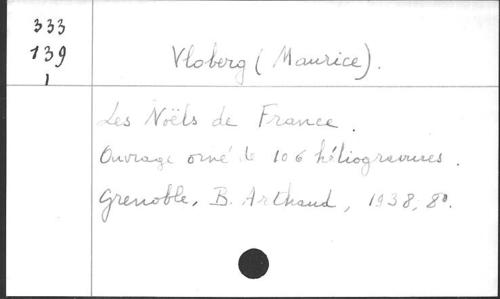 333
139
1
Vloberg (Maurice).
Les Noëls de France.
Ouvrage orné de 106 héliogravures.
Grenoble, B. Arthaud, 1938, 8º.